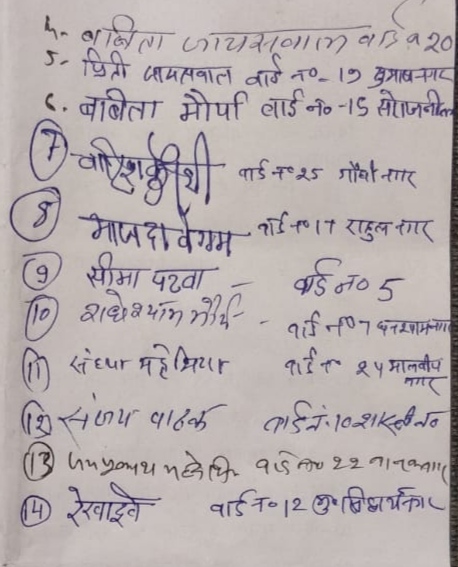 4. बबिता जायसवाल वार्ड न 20
5. प्रिती जायसवाल वार्ड न०- 19 सुभाषनगर
6. बबिता मौर्या वार्ड न० -15
7 वार्ड न० 25 गाँधी नगर
8 माजदा वेगम वार्ड न० 17 राहुल नगर
9 सीमा पटवा - वार्ड न० 5
10 राधेश्याम मौर्य - वार्ड न० 7
11 संध्या महेशिया वार्ड न० 24 मालवीय
नगर
12 संजय पाठक वार्ड नं. 10 शास्त्री न०
13 वार्ड न० 22 नानकनगर
14 रेखादेवी वार्ड न० 12